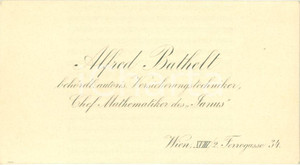 Alfred Bathelt
behördl. autoris. Versicherungstechniker,
Chef-Mathematiker des „Janus"
Wien, XVIII/2. Ferrogasse 34.